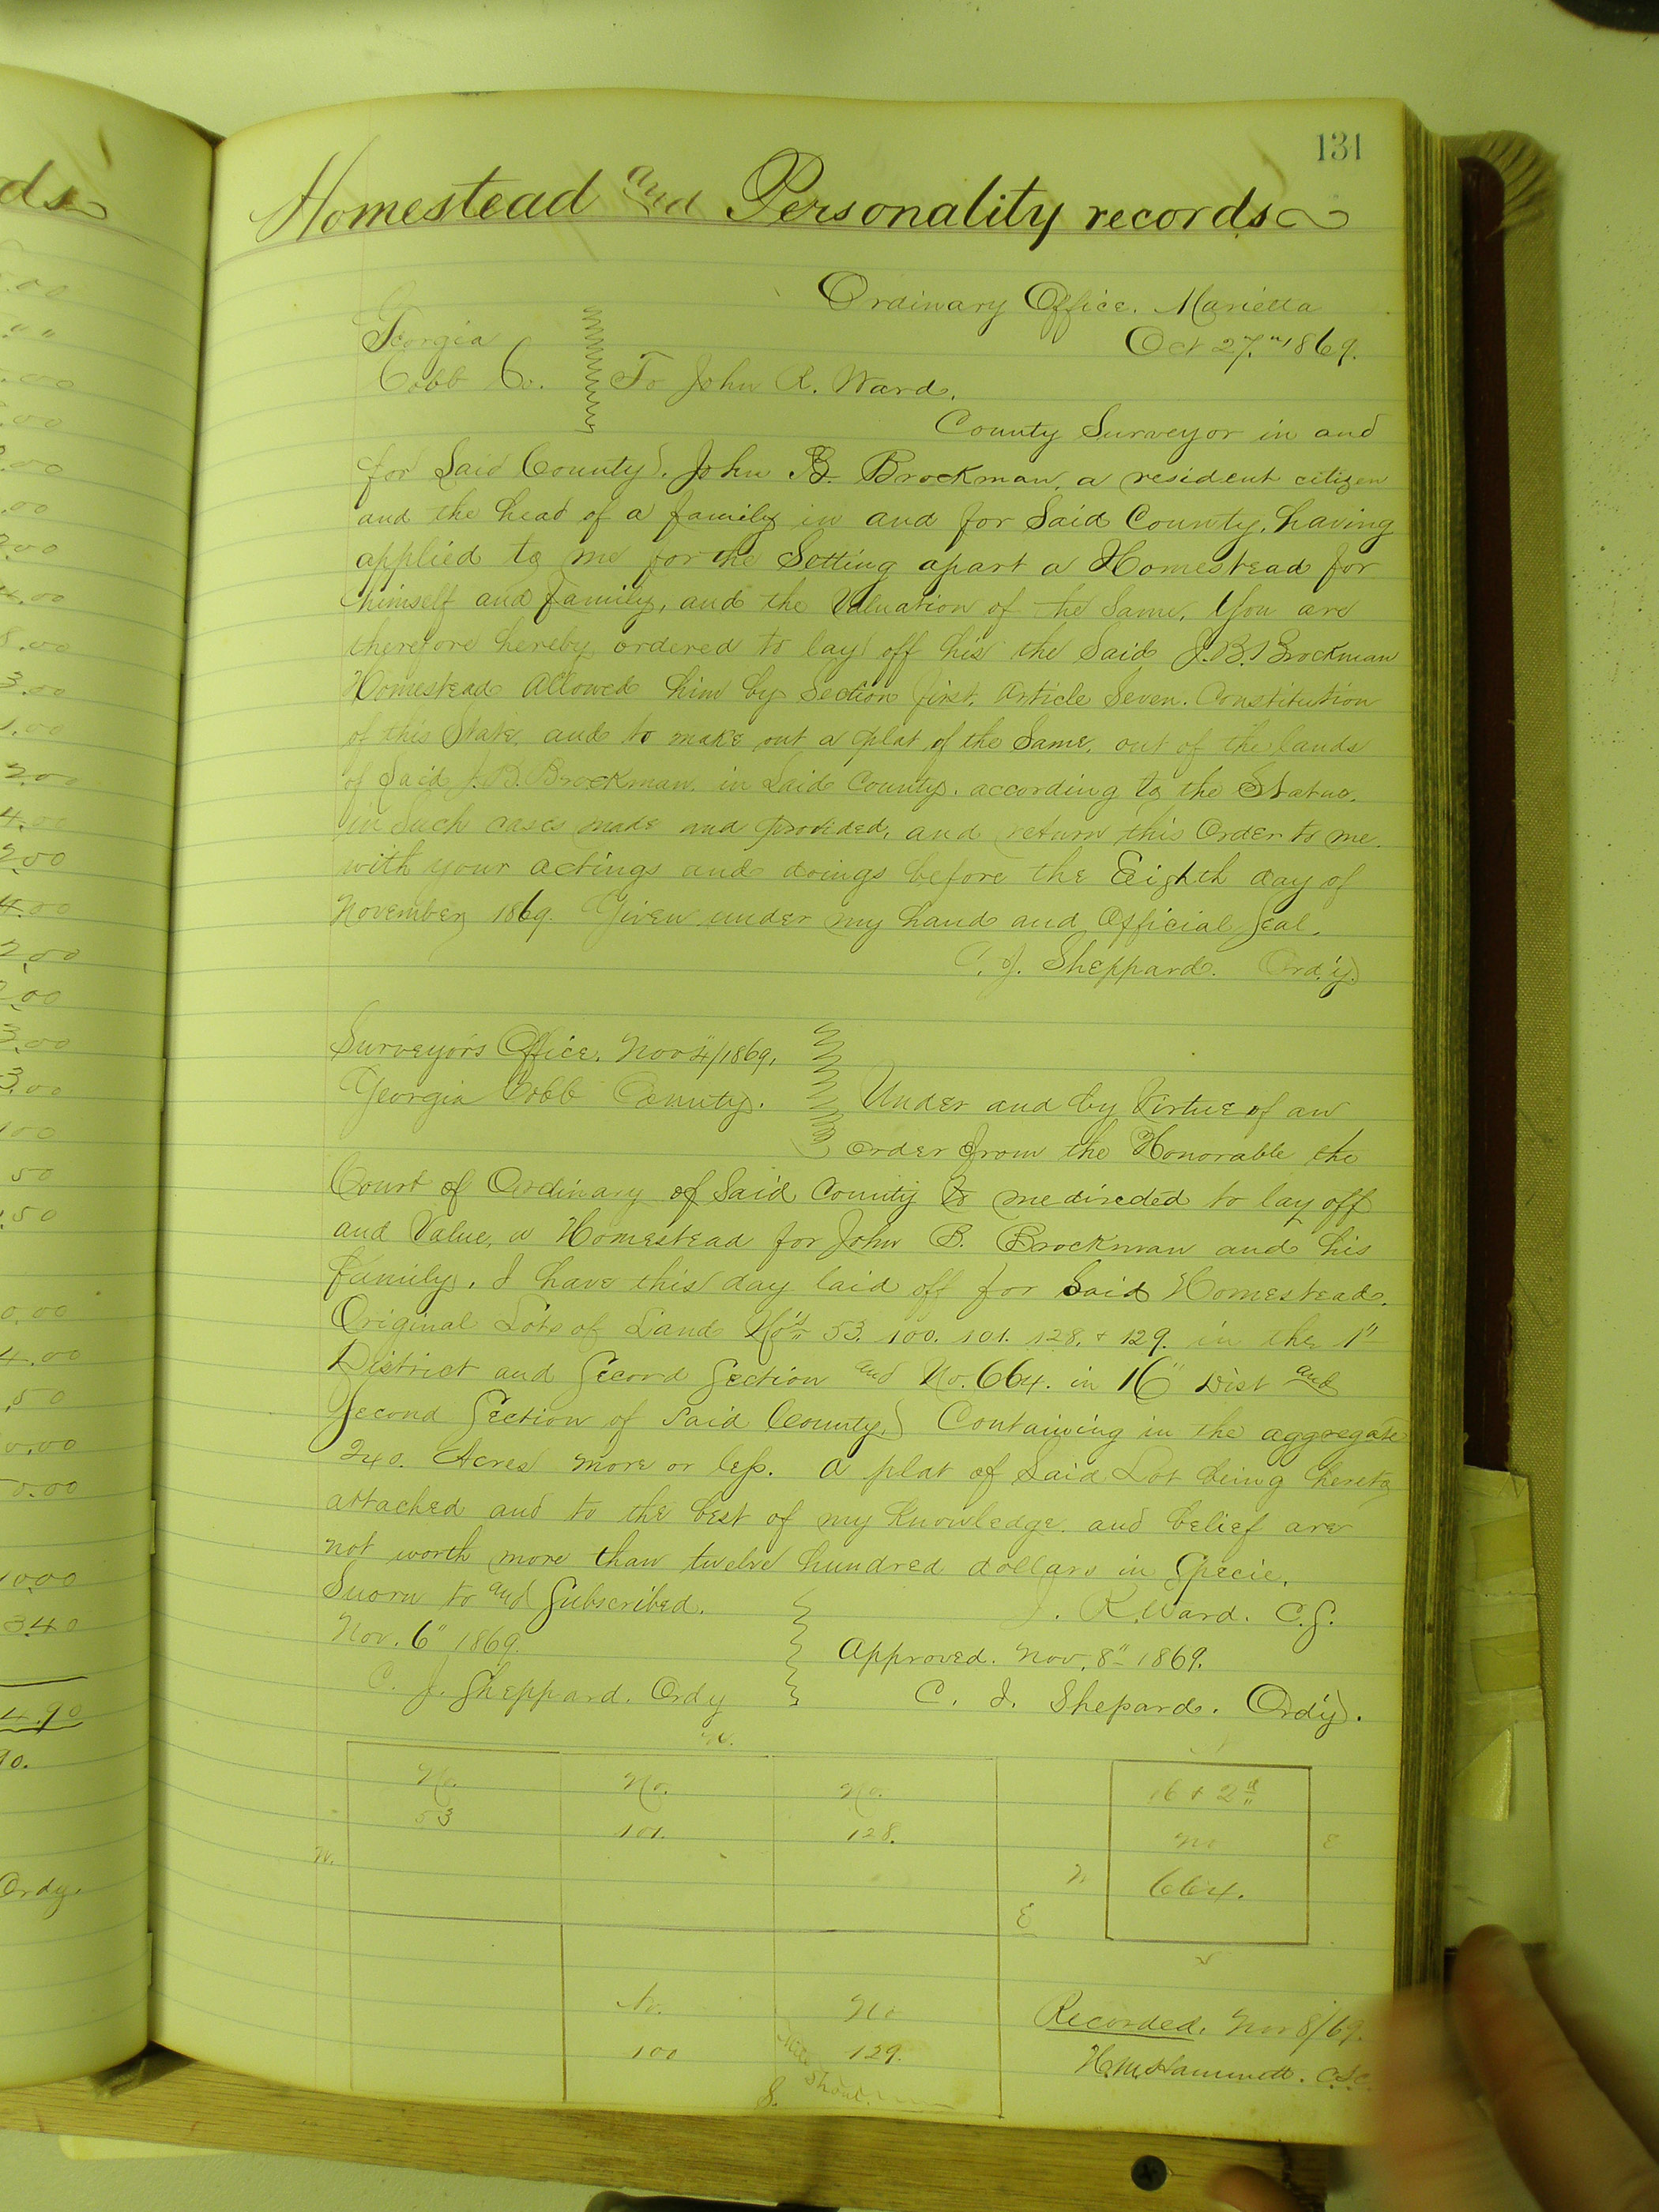 131
Homestead and Personality records
Ordinary Office. Marietta
Georgia
Oct 27th 1869.
Cobb Co. To John R. Ward.
County Surveyor in and
for Said County. John B. Brockman, a resident citizen
and the head of a family in and for Said County, having
applied to me for the Setting apart a Homestead for
himself and Family, and the Valuation of the Same. You are
therefore hereby ordered to lay off his the Said J.B. Brockman
Homestead Allowed him by Section first, Article Seven. Constitution
of this State, and to make out a plat of the Same, out of the lands
of Said J.B. Brockman in Said County. according to the Statue.
in Such cases made and provided, and return this Order to me.
with your actings and doings before the Eighth day of
November 1869. Given under my hand and Official Seal.
C. J. Sheppard. Ord'y.
Surveyors Office. Nov 4/1869.
Georgia Cobb County. Under and by Virtue of an
order from the Honorable the
Court of Ordinary of Said County to me directed to lay off
and Value, a Homestead for John B. Brockman and his
family. I have this day laid off for Said Homestead.
Original Lots of Land No's 53. 100. 101. 128. & 129. in the 1"
District and Second Section and No. 664. in 16" Dist and
Second Section of Said County. Containing in the aggregate
240. Acres more or less. A plat of Said Lot being hereto
attached and to the best of my Knowledge. and belief are
not worth more than twelve hundred dollars in Specie.
Suorn to and Subscribed. J. R. Ward. C.S.
Nov. 6" 1869. Approved. Nov. 8" 1869.
C. J. Sheppard. Ordy C. J. Shepard. Ord'y.
N.
N
No. No. No. 16 & 2d
53 101. 128. No E
W. W 664.
E
S
No. No Recorded. Nov 8/69.
100 129. H.M. Hammett. C.S.C.
Shoal
S.
ds
4.90
Ordy.